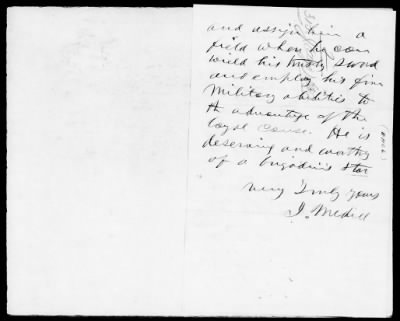 and assign him a
field where he can
wield his trusty sword
and employ his fine
Military abilities to
the advantage of the
loyal cause. He is
deserving and worthy
of a brigadier's star
Very Truly yours
J. Medill
(OVER)